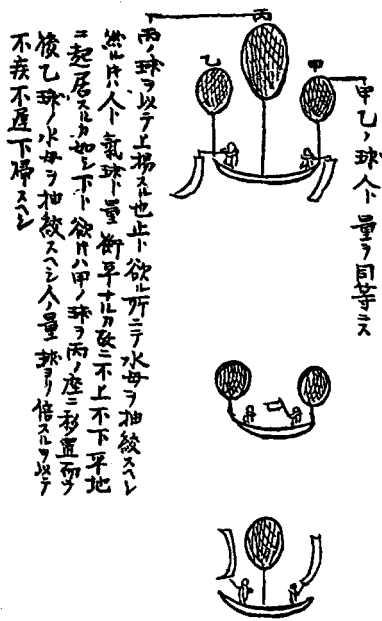 甲乙ノ球人ト量ヲ同等ニス
甲
丙
乙
丙ノ球ヲ以テ上揚スル也止ト欲ル所ニテ水母ヲ抽絞スヘシ
然ル片ハ人ト氣球ト量衡平ナルカ故ニ不上不下平地
ニ起居スルカ如シ下ト欲片ハ甲ノ球ヲ丙ノ座ニ移置而乄
後乙球ノ水母ヲ抽絞スヘシ人ノ量球ヨリ倍スルヲ以テ
不疾不遅下帰スヘシ